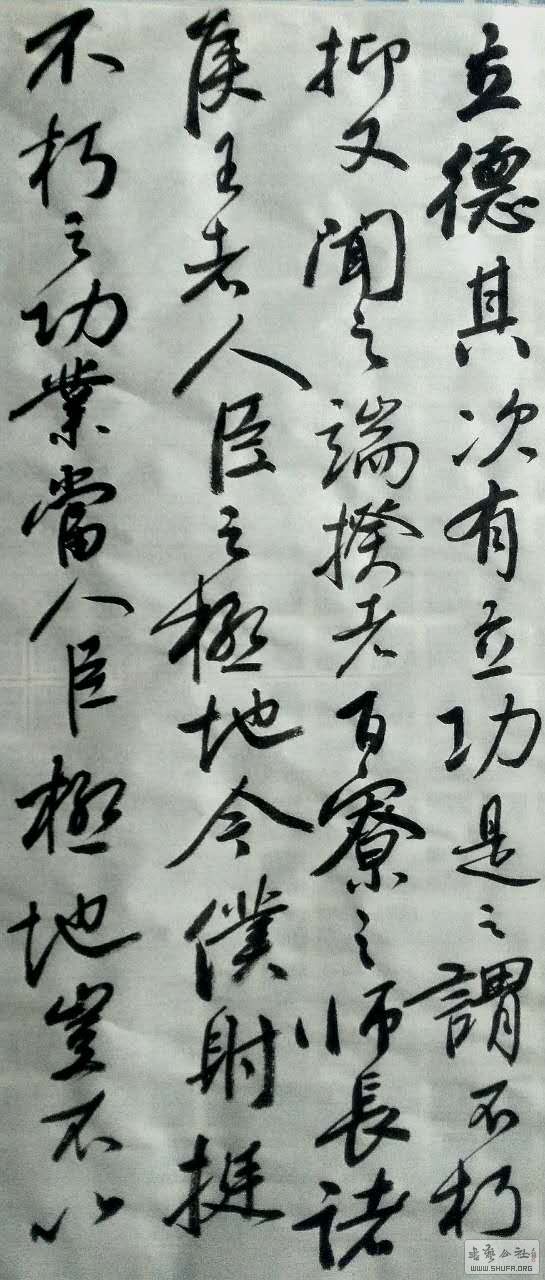 立德其次有立功是之謂不朽
抑又聞之端揆者百寮之师長諸
侯王者人臣之極地今僕射挺
不朽之功業當人臣極地豈不以
WWW.SHUFA.ORG